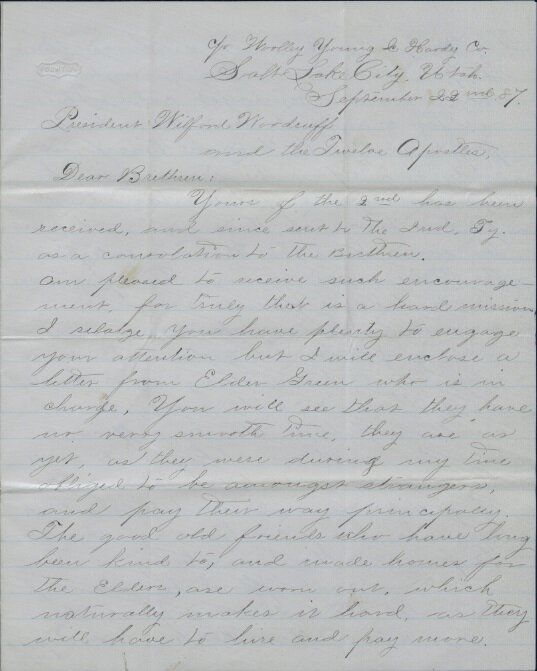 c/o Woolley Young & Hardy Co.
Salt Lake City, Utah.
September 22nd 87.
President Wilford Woodruff
and the Twelve Apostles.
Dear Brethren:
Yours of the 2nd has been
received, and since sent to the Ind. Ty.
as a consolation to the Brethren.
am pleased to receive such encourage-
ment, for truly that is a hard mission.
I you have plenty to engage
your attention but I will enclose a
letter from Elder Green who is in
charge. You will see that they have
no very smooth time, they are as
yet, as they were during my time
obliged to be amongst strangers,
and pay their way principally.
The good old friends who have long
been kind to, and made homes for
the Elders, are worn out, which
naturally makes it hard, as they
will have to hire and pay more.